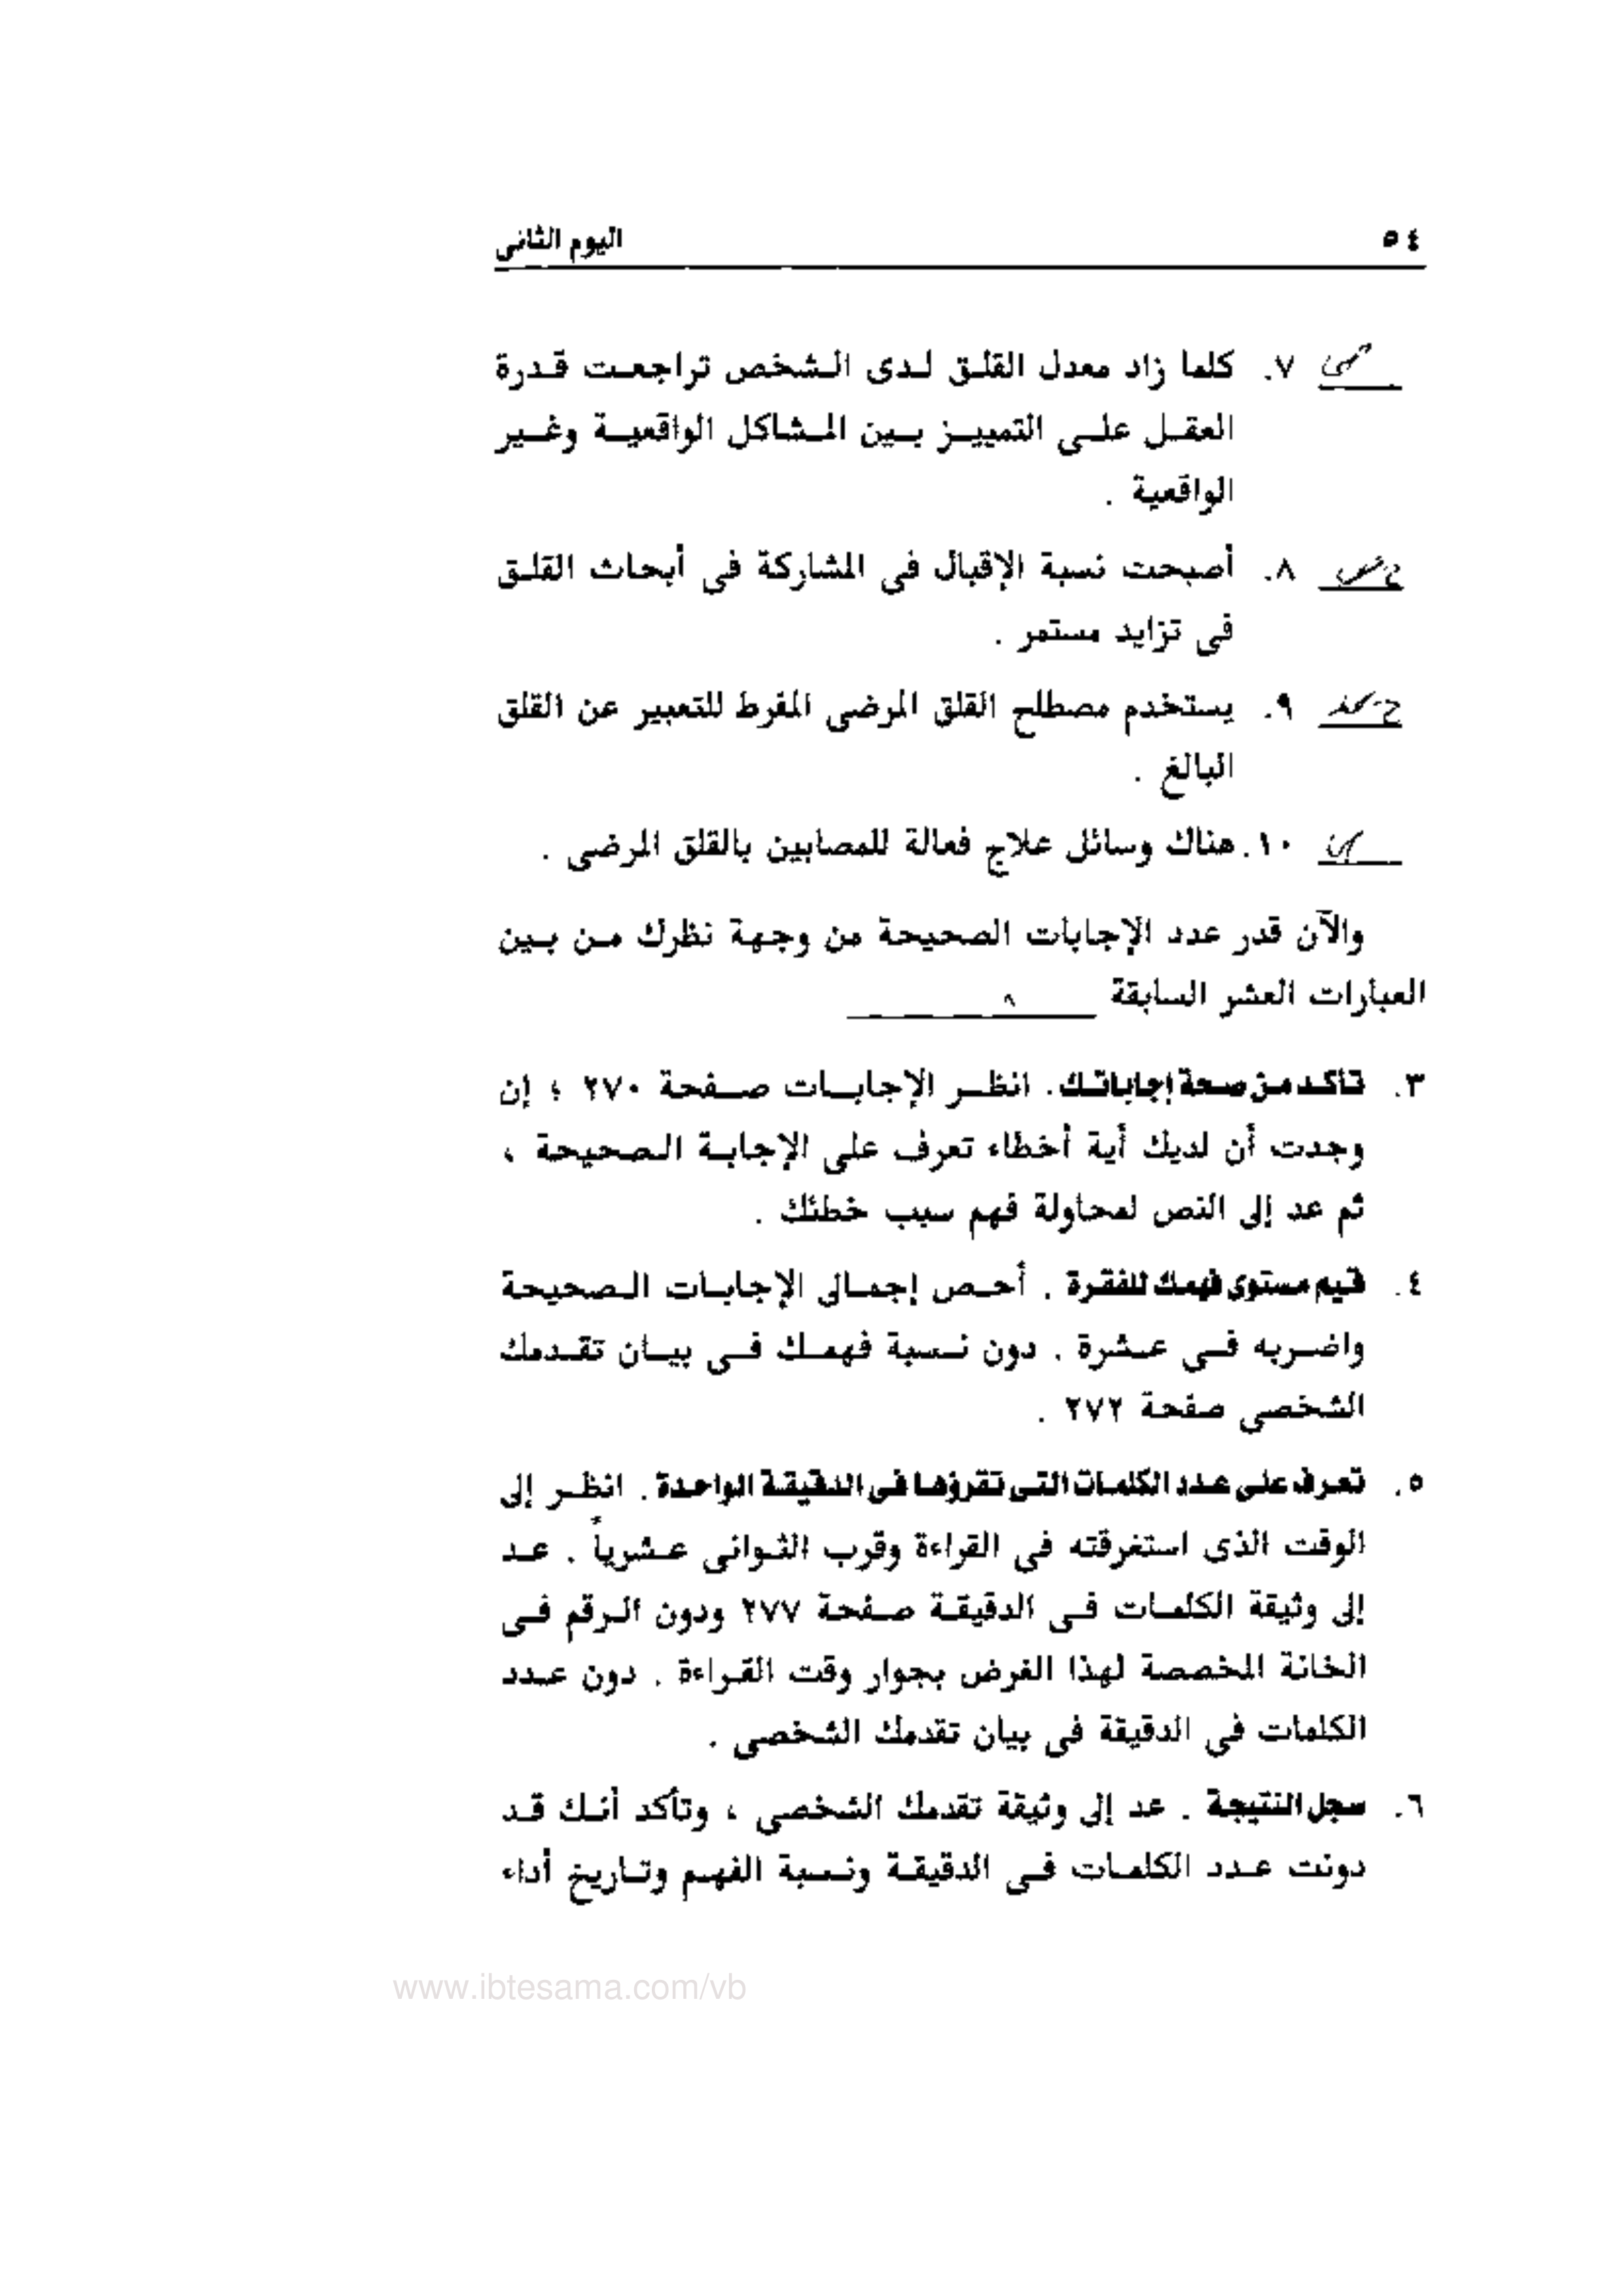 ٥٤
اليوم الثانى
٧. كلما زاد معدل القلق لدى الشخص تراجعت قدرة
العقل على التمييز بين المشاكل الواقعية وغير
الواقعية .
٨. أصبحت نسبة الإقبال فى المشاركة فى أبحاث القلق
فى تزايد مستمر .
٩. يستخدم مصطلح القلق المرضى المفرط للتعبير عن القلق
البالغ .
١٠. هناك وسائل علاج فعالة للمصابين بالقلق المرضى .
والآن قدر عدد الإجابات الصحيحة من وجهة نظرك من بين
العبارات العشر السابقة
٣. تأكد من صحة إجاباتك . انظر الإجابات صفحة ٢٧٠ ؛ إن
وجدت أن لديك أية أخطاء تعرف على الإجابة الصحيحة ،
ثم عد إلى النص لمحاولة فهم سبب خطئك .
٤. قيم مستوى فهمك للفقرة . أحص إجمالى الإجابات الصحيحة
واضربه فى عشرة . دون نسبة فهمك فى بيان تقدمك
الشخصى صفحة ٢٧٢ .
٥. تعرف على عدد الكلمات التى تقرؤها فى الدقيقة الواحدة . انظر إلى
الوقت الذى استغرقته فى القراءة وقرب الثوانى عشرياً . عد
إلى وثيقة الكلمات فى الدقيقة صفحة ٢٧٧ ودون الرقم فى
الخانة المخصصة لهذا الغرض بجوار وقت القراءة . دون عدد
الكلمات فى الدقيقة فى بيان تقدمك الشخصى .
٦. سجل النتيجة . عد إلى وثيقة تقدمك الشخصى ، وتأكد أنك قد
دونت عدد الكلمات فى الدقيقة ونسبة الفهم وتاريخ أداء
www.ibtesama.com/vb